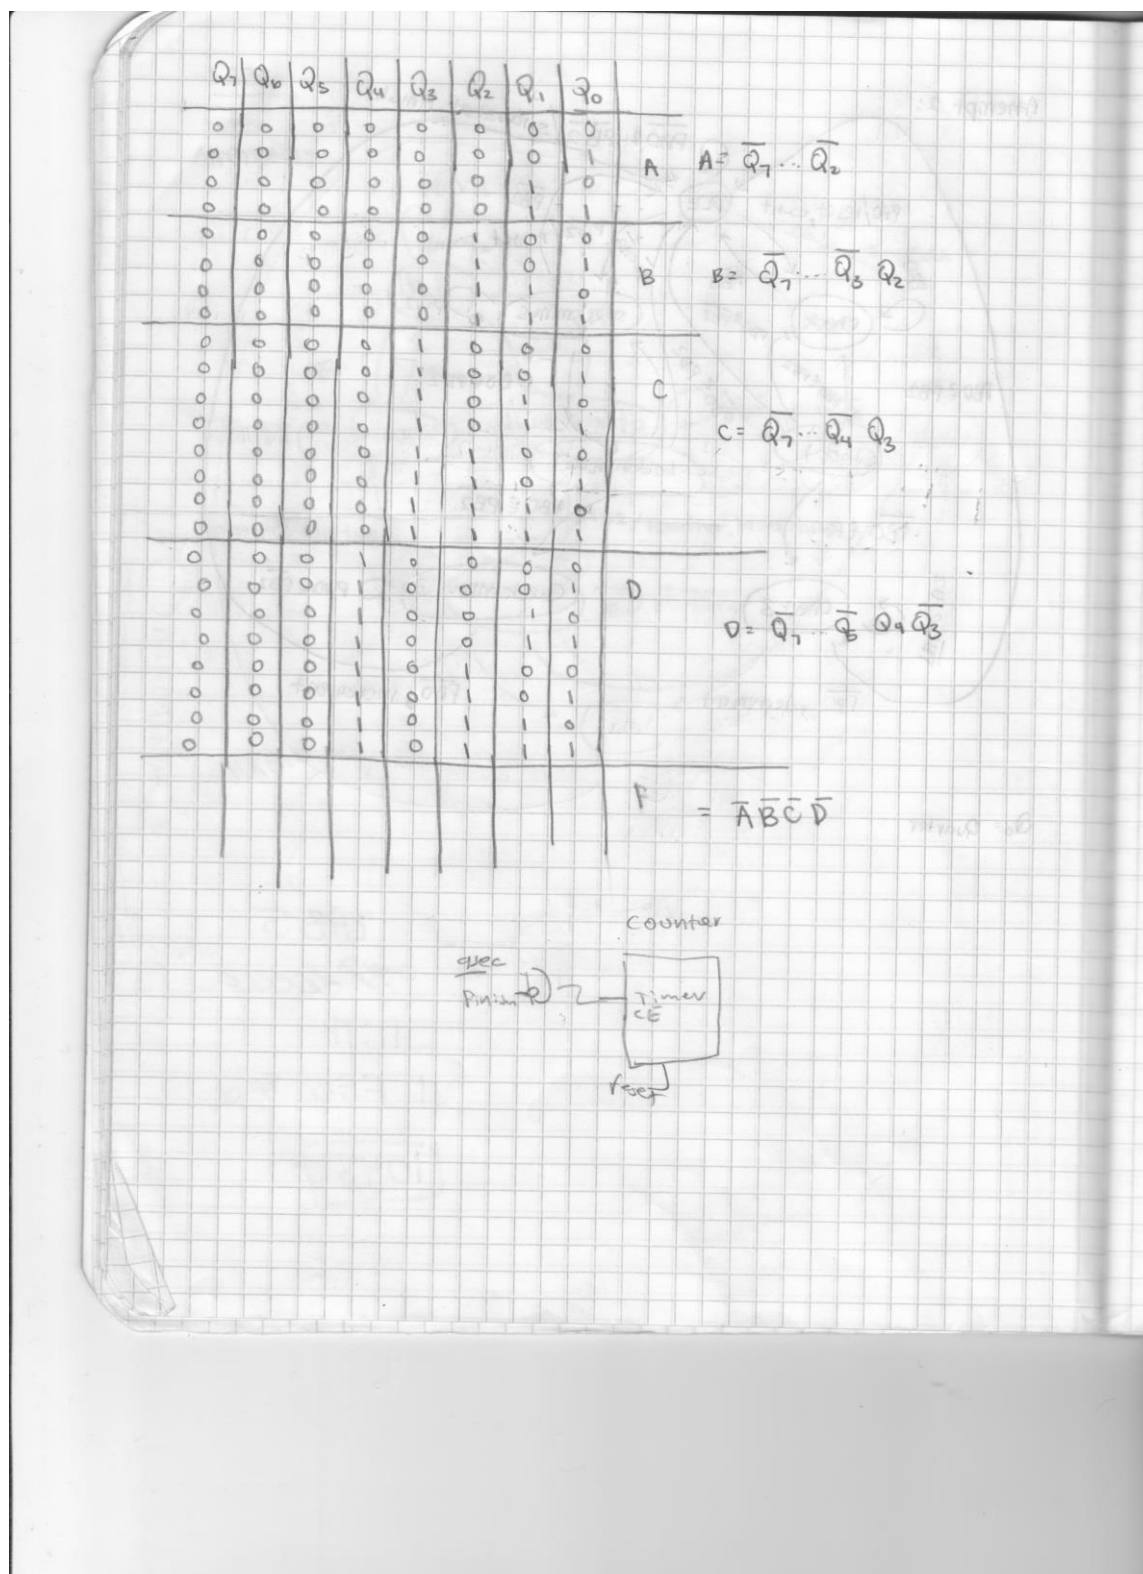 Q₇ Q₆ Q₅ Q₄ Q₃ Q₂ Q₁ Q₀
0 0 0 0 0 0 0 0
0 0 0 0 0 0 0 1
0 0 0 0 0 0 1 0
0 0 0 0 0 0 1 1
A A = Q̅₇ ... Q̅₂
0 0 0 0 0 1 0 0
0 0 0 0 0 1 0 1
0 0 0 0 0 1 1 0
0 0 0 0 0 1 1 1
B B = Q̅₇ ... Q̅₃ Q₂
0 0 0 0 1 0 0 0
0 0 0 0 1 0 0 1
0 0 0 0 1 0 1 0
0 0 0 0 1 0 1 1
0 0 0 0 1 1 0 0
0 0 0 0 1 1 0 1
0 0 0 0 1 1 1 0
0 0 0 0 1 1 1 1
C
C = Q̅₇ ... Q̅₄ Q₃
0 0 0 1 0 0 0 0
0 0 0 1 0 0 0 1
0 0 0 1 0 0 1 0
0 0 0 1 0 0 1 1
0 0 0 1 0 1 0 0
0 0 0 1 0 1 0 1
0 0 0 1 0 1 1 0
0 0 0 1 0 1 1 1
D
D = Q̅₇ ... Q̅₅ Q₄ Q̅₃
F = A̅ B̅ C̅ D̅
Counter
qsec
Timer
CE
reset